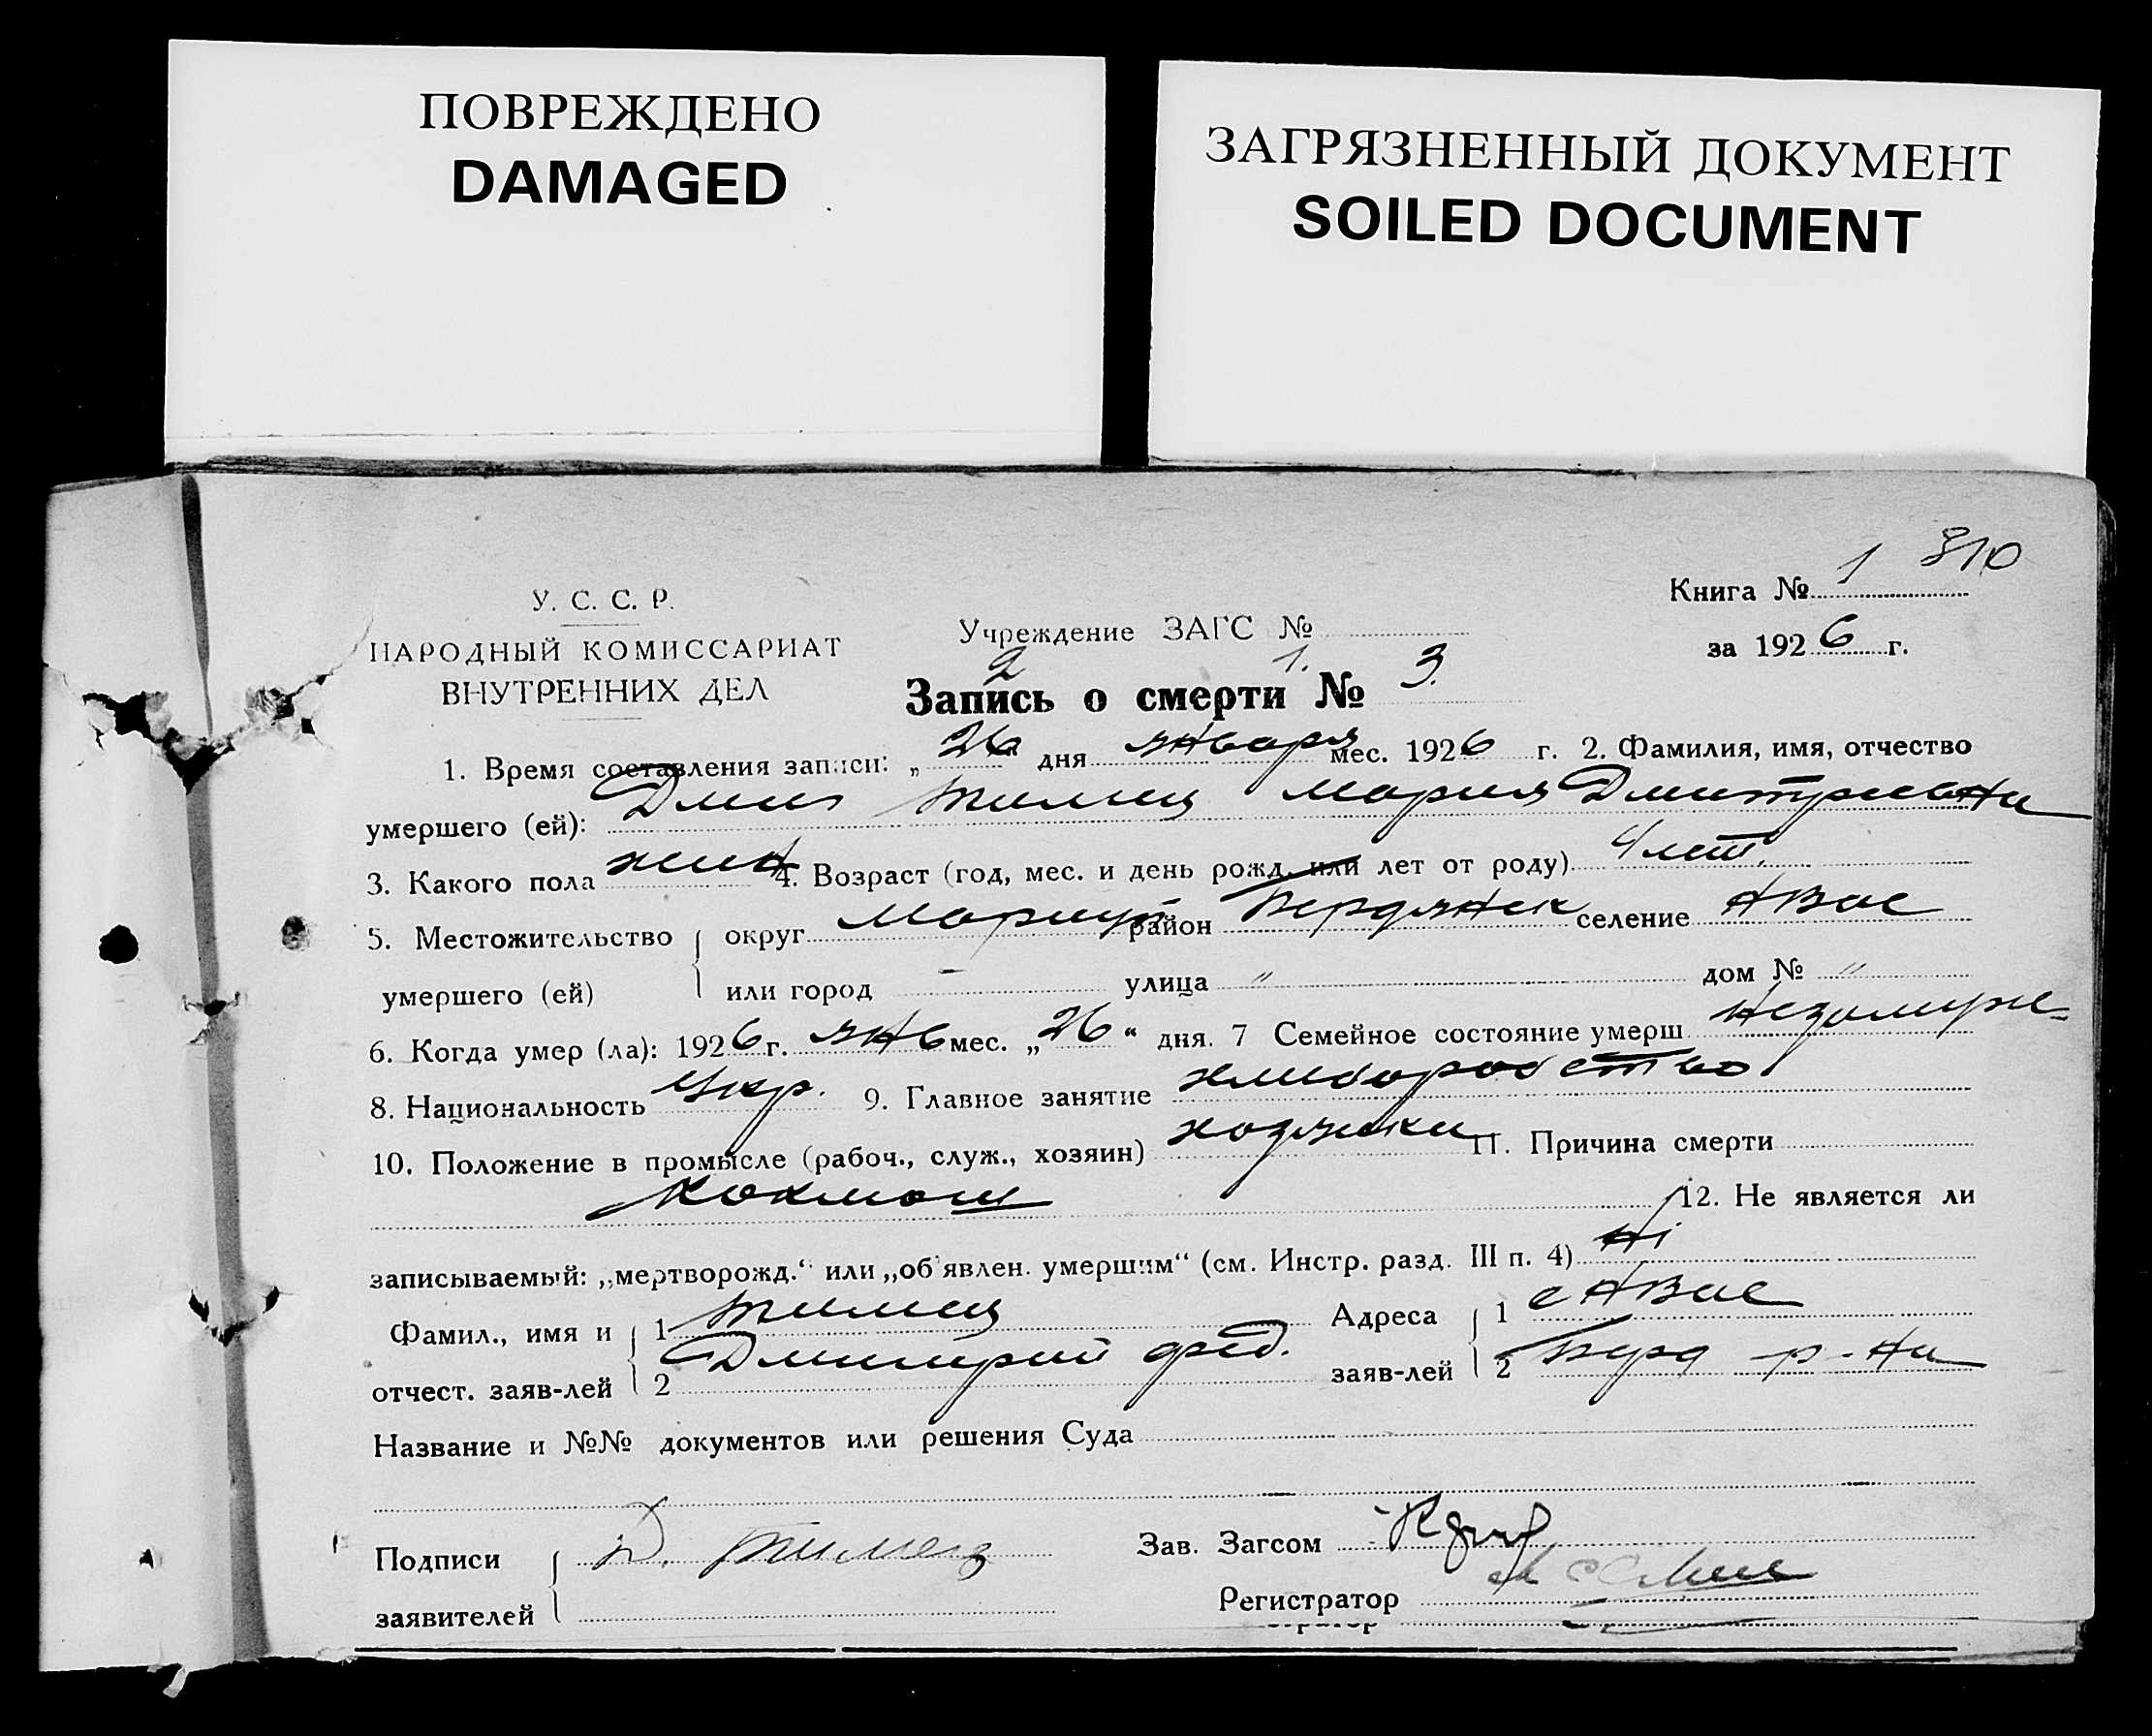 ПОВРЕЖДЕНО
DAMAGED
ЗАГРЯЗНЕННЫЙ ДОКУМЕНТ
SOILED DOCUMENT
810
Книга № 1
за 1926 г.
У. С. С. Р.
НАРОДНЫЙ КОМИССАРИАТ
ВНУТРЕННИХ ДЕЛ
Учреждение ЗАГС №
2 1.
Запись о смерти № 3.
1. Время составления записи: „26“ дня января мес. 1926 г. 2. Фамилия, имя, отчество
умершего (ей): Тилиц Мария Дмитриевна
3. Какого пола жин 4. Возраст (год, мес. и день рожд. или лет от роду) 4 лет.
5. Местожительство округ Мариуп район Бердянск селение Азов
умершего (ей) или город – улица " дом № "
6. Когда умер (ла): 1926 г. янв мес. „26“ дня. 7 Семейное состояние умерш незамуж-
8. Национальность Укр. 9. Главное занятие хлиборобство
10. Положение в промысле (рабоч., служ., хозяин) 11. Причина смерти
Коклюш 12. Не является ли
записываемый: „мертворожд.“ или „об'явлен. умершим“ (см. Инстр. разд. III п. 4) Ні
Фамил., имя и 1 Тилиц Адреса 1 с
отчест. заяв-лей 2 Дмитрий фед. заяв-лей 2 р-на
Название и №№ документов или решения Суда
Подписи Д. Зав. Загсом
заявителей Регистратор